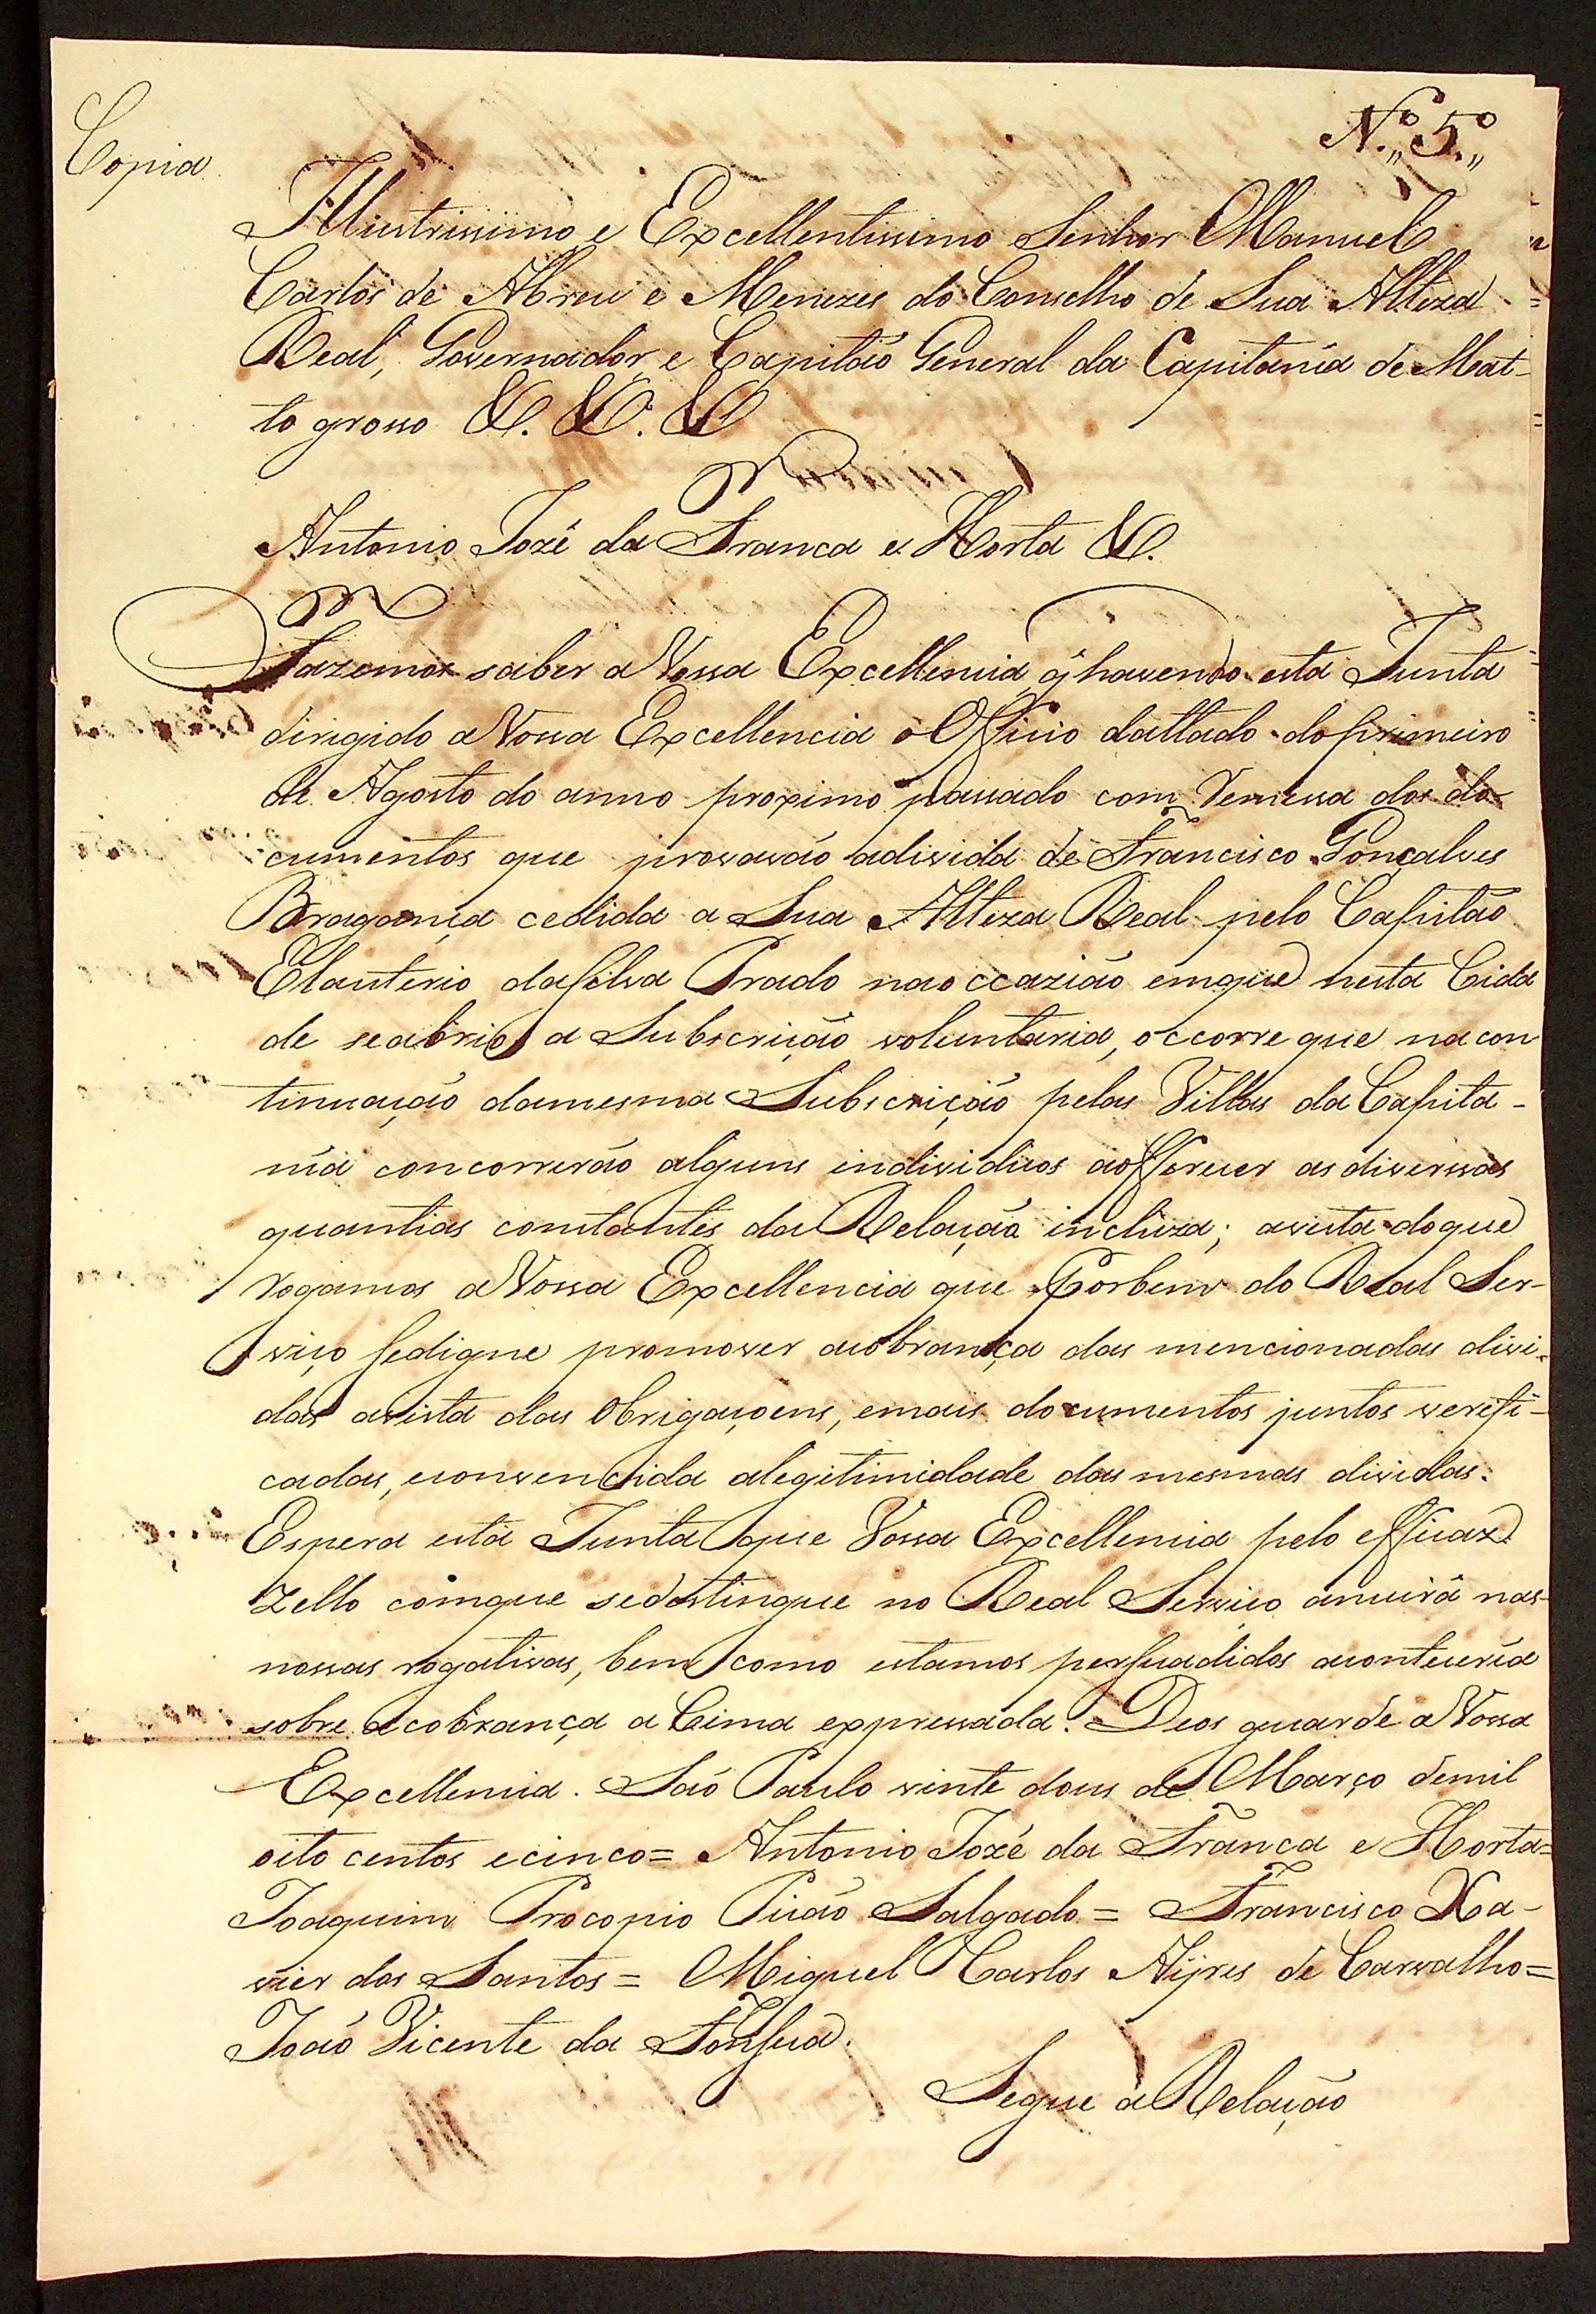 Copia
N.º 5.º
Illustrissimo e Excellentissimo Senhor Manuel
Carlos de Abreu e Menezes do Conselho de Sua Alteza
Real, Governador, e Capitão General da Capitanía de Mat-
to grosso &. &. &
Antonio Jozé da Franca e Horta &.
Fazemos saber a Vossa Excellencia q̃ havendo esta Junta
dirigido a Vossa Excellencia o Officio dattado do primeiro
de Agosto do anno proximo passado com remessa dos do
cumentos que provavão adivida de Francisco Gonçalves
Bragança cedida a Sua Alteza Real pelo Capitão
Elauterio da Silva Prado na occazião emque nesta Cida
de seabrio a Subscrição voluntaria, occorre que na con
tinuação damesma Subscrição pelas Villas da Capita-
nía concorrerão alguns individuos aofferecer as diversas
quantias constantes da Relação incluza; avista doque
rogamos a Vossa Excellencia que Porbem do Real Ser-
viço sedigne promover acobrança das mencionadas divi-
das avista das Obrigaçoens, emais documentos juntos verefi-
cadas, econvencida alegitimidade das mesmas dividas.
Espera esta Junta que Vossa Excellencia pelo efficáz
Zello comque sedestingue no Real Serviço anuirá nas
nossas rogativas, bem como estamos persuadidos aconteceria
sobre acobrança a Cima expressada. Deos guarde a Vossa
Excellencia. São Paulo vinte dous de Março demil
oito centos ecinco= Antonio Jozé da Franca e Horta=
Joaquim Procopio Picão Salgado= Francisco Xa-
vier dos Santos= Miguel Carlos Aÿres de Carvalho=
João Vicente da Fonseca.
Segue a Relação